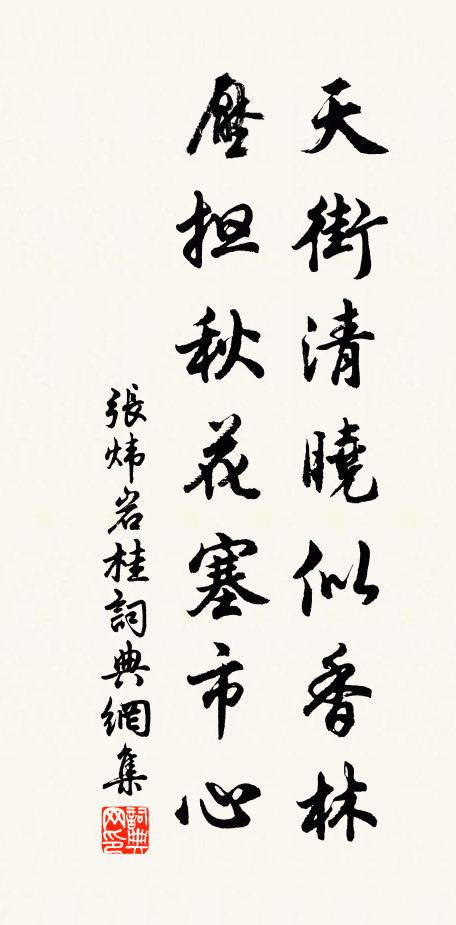 天街清曉似香林
壓担秋花塞市心
張炜岩桂詞典網集
詞典网印